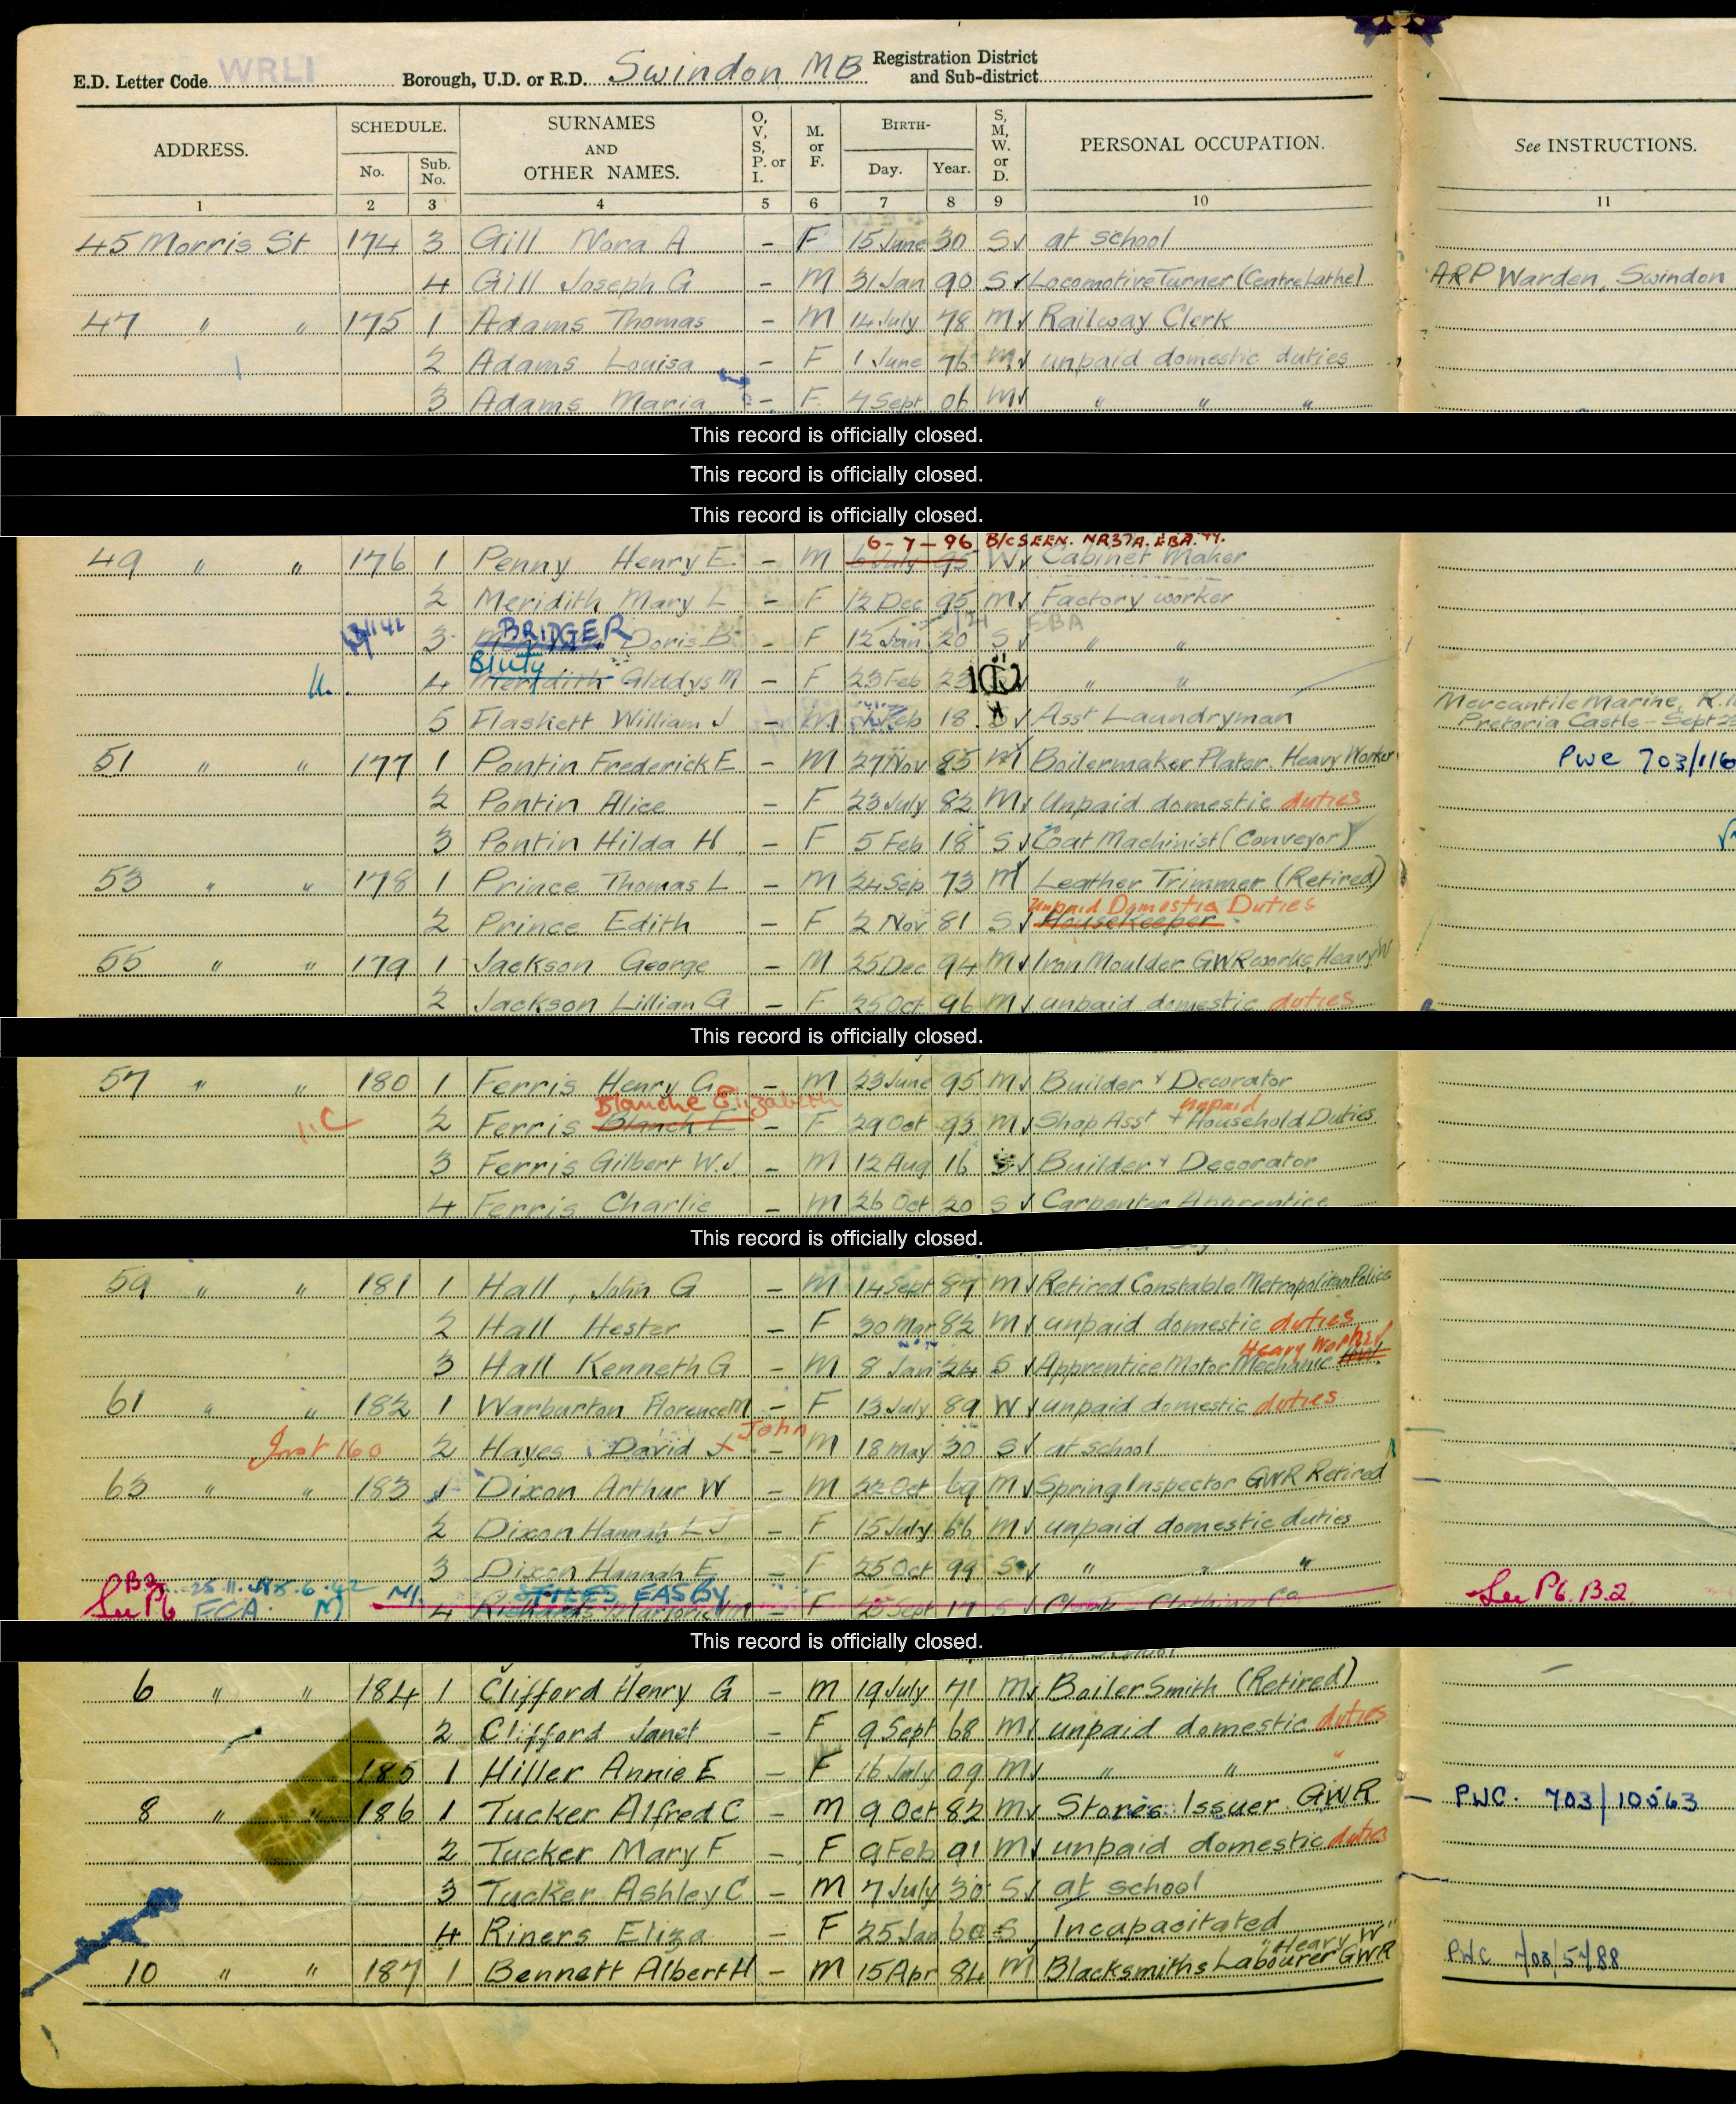 E.D. Letter Code WRLI Borough, U.D. or R.D. Swindon MB Registration District and Sub-district
ADDRESS. SCHEDULE. No. Sub. No. SURNAMES AND OTHER NAMES. O, V, S, P. or I. M. or F. BIRTH- Day. Year. S, M, W. or D. PERSONAL OCCUPATION. See INSTRUCTIONS.
1 2 3 4 5 6 7 8 9 10 11
45 Morris St. 174 3 Gill Nora A - F 15 June 30 S at school
4 Gill Joseph G - M 31 Jan 90 S Locomotive Turner (Centre Lathe) ARP Warden, Swindon
47 " " 175 1 Adams Thomas - M 14 July 78 M Railway Clerk
2 Adams Louisa - F 1 June 76 M unpaid domestic duties
3 Adams Maria - F 7 Sept 06 M " " "
This record is officially closed.
This record is officially closed.
This record is officially closed.
6-7-96 B/C SEEN. NR37A. EBA.
49 " " 176 1 Penny Henry E. - M 6 July 95 W Cabinet Maker
2 Meridith Mary L - F 12 Dec 95 M Factory worker
3 BRIDGER Doris B - F 12 Jan 20 S " "
Bluty
4 Meridith Gladys M - F 23 Feb 23 " "
5 Flashett William J - M Feb 18 Asst Laundryman Mercantile Marine, Pretoria Castle - Sept
51 " " 177 1 Pontin Frederick E - M 27 Nov 85 M Boilermaker Plater. Heavy Worker PWC 703/116
2 Pontin Alice - F 23 July 82 M Unpaid domestic duties
3 Pontin Hilda H - F 5 Feb 18 S Coat Machinist (Conveyor)
53 " " 178 1 Prince Thomas L - M 24 Sep 73 M Leather Trimmer (Retired)
Unpaid Domestic Duties
2 Prince Edith - F 2 Nov 81 S Housekeeper
55 " " 179 1 Jackson George - M 25 Dec 94 M Iron Moulder GWR works, Heavy W
2 Jackson Lillian G - F 25 Oct 96 M unpaid domestic duties
This record is officially closed.
57 " " 180 1 Ferris Henry G - M 23 June 95 M Builder & Decorator
Blanche Elizabeth unpaid
2 Ferris Blanch E - F 29 Oct 93 M Shop Asst + Household Duties
3 Ferris Gilbert W.J - M 12 Aug 16 S Builder & Decorator
4 Ferris Charlie - M 26 Oct 20 S Carpenter Apprentice
This record is officially closed.
59 " " 181 1 Hall, John G - M 14 Sept 87 M Retired Constable Metropolitan Police
2 Hall Hester - F 30 Mar 82 M unpaid domestic duties
Heavy Worker
3 Hall Kenneth G - M 8 Jan 24 S Apprentice Motor Mechanic
61 " " 182 1 Warburton Florence M - F 13 July 89 W unpaid domestic duties
John
Inst 160 2 Hayes David J - M 18 May 30 S at school
63 " " 183 1 Dixon Arthur W - M 22 Oct 69 M Spring Inspector GWR Retired
2 Dixon Hannah L J - F 15 July 66 M unpaid domestic duties
3 Dixon Hannah E - F 25 Oct 99 S " " "
B2 STILES EASBY
See P6 ECA 4 Richards Marjorie M - F 25 Sept 17 S Clerk Clothing Co See P6. B.2
This record is officially closed.
6 " " 184 1 Clifford Henry G - M 19 July 71 M Boiler Smith (Retired)
2 Clifford Janet - F 9 Sept 68 M unpaid domestic duties
185 1 Hiller Annie E - F 16 July 09 M " " "
8 " " 186 1 Tucker Alfred C - M 9 Oct 82 M Stores Issuer GWR PWC. 703/10563
2 Tucker Mary F - F 9 Feb 91 M unpaid domestic duties
3 Tucker Ashley C - M 7 July 30 S at school
4 Riners Eliza - F 25 Jan 60 S Incapacitated
Heavy W
10 " " 187 1 Bennett Albert H - M 15 Apr 84 M Blacksmiths Labourer GWR PWC 703/5788